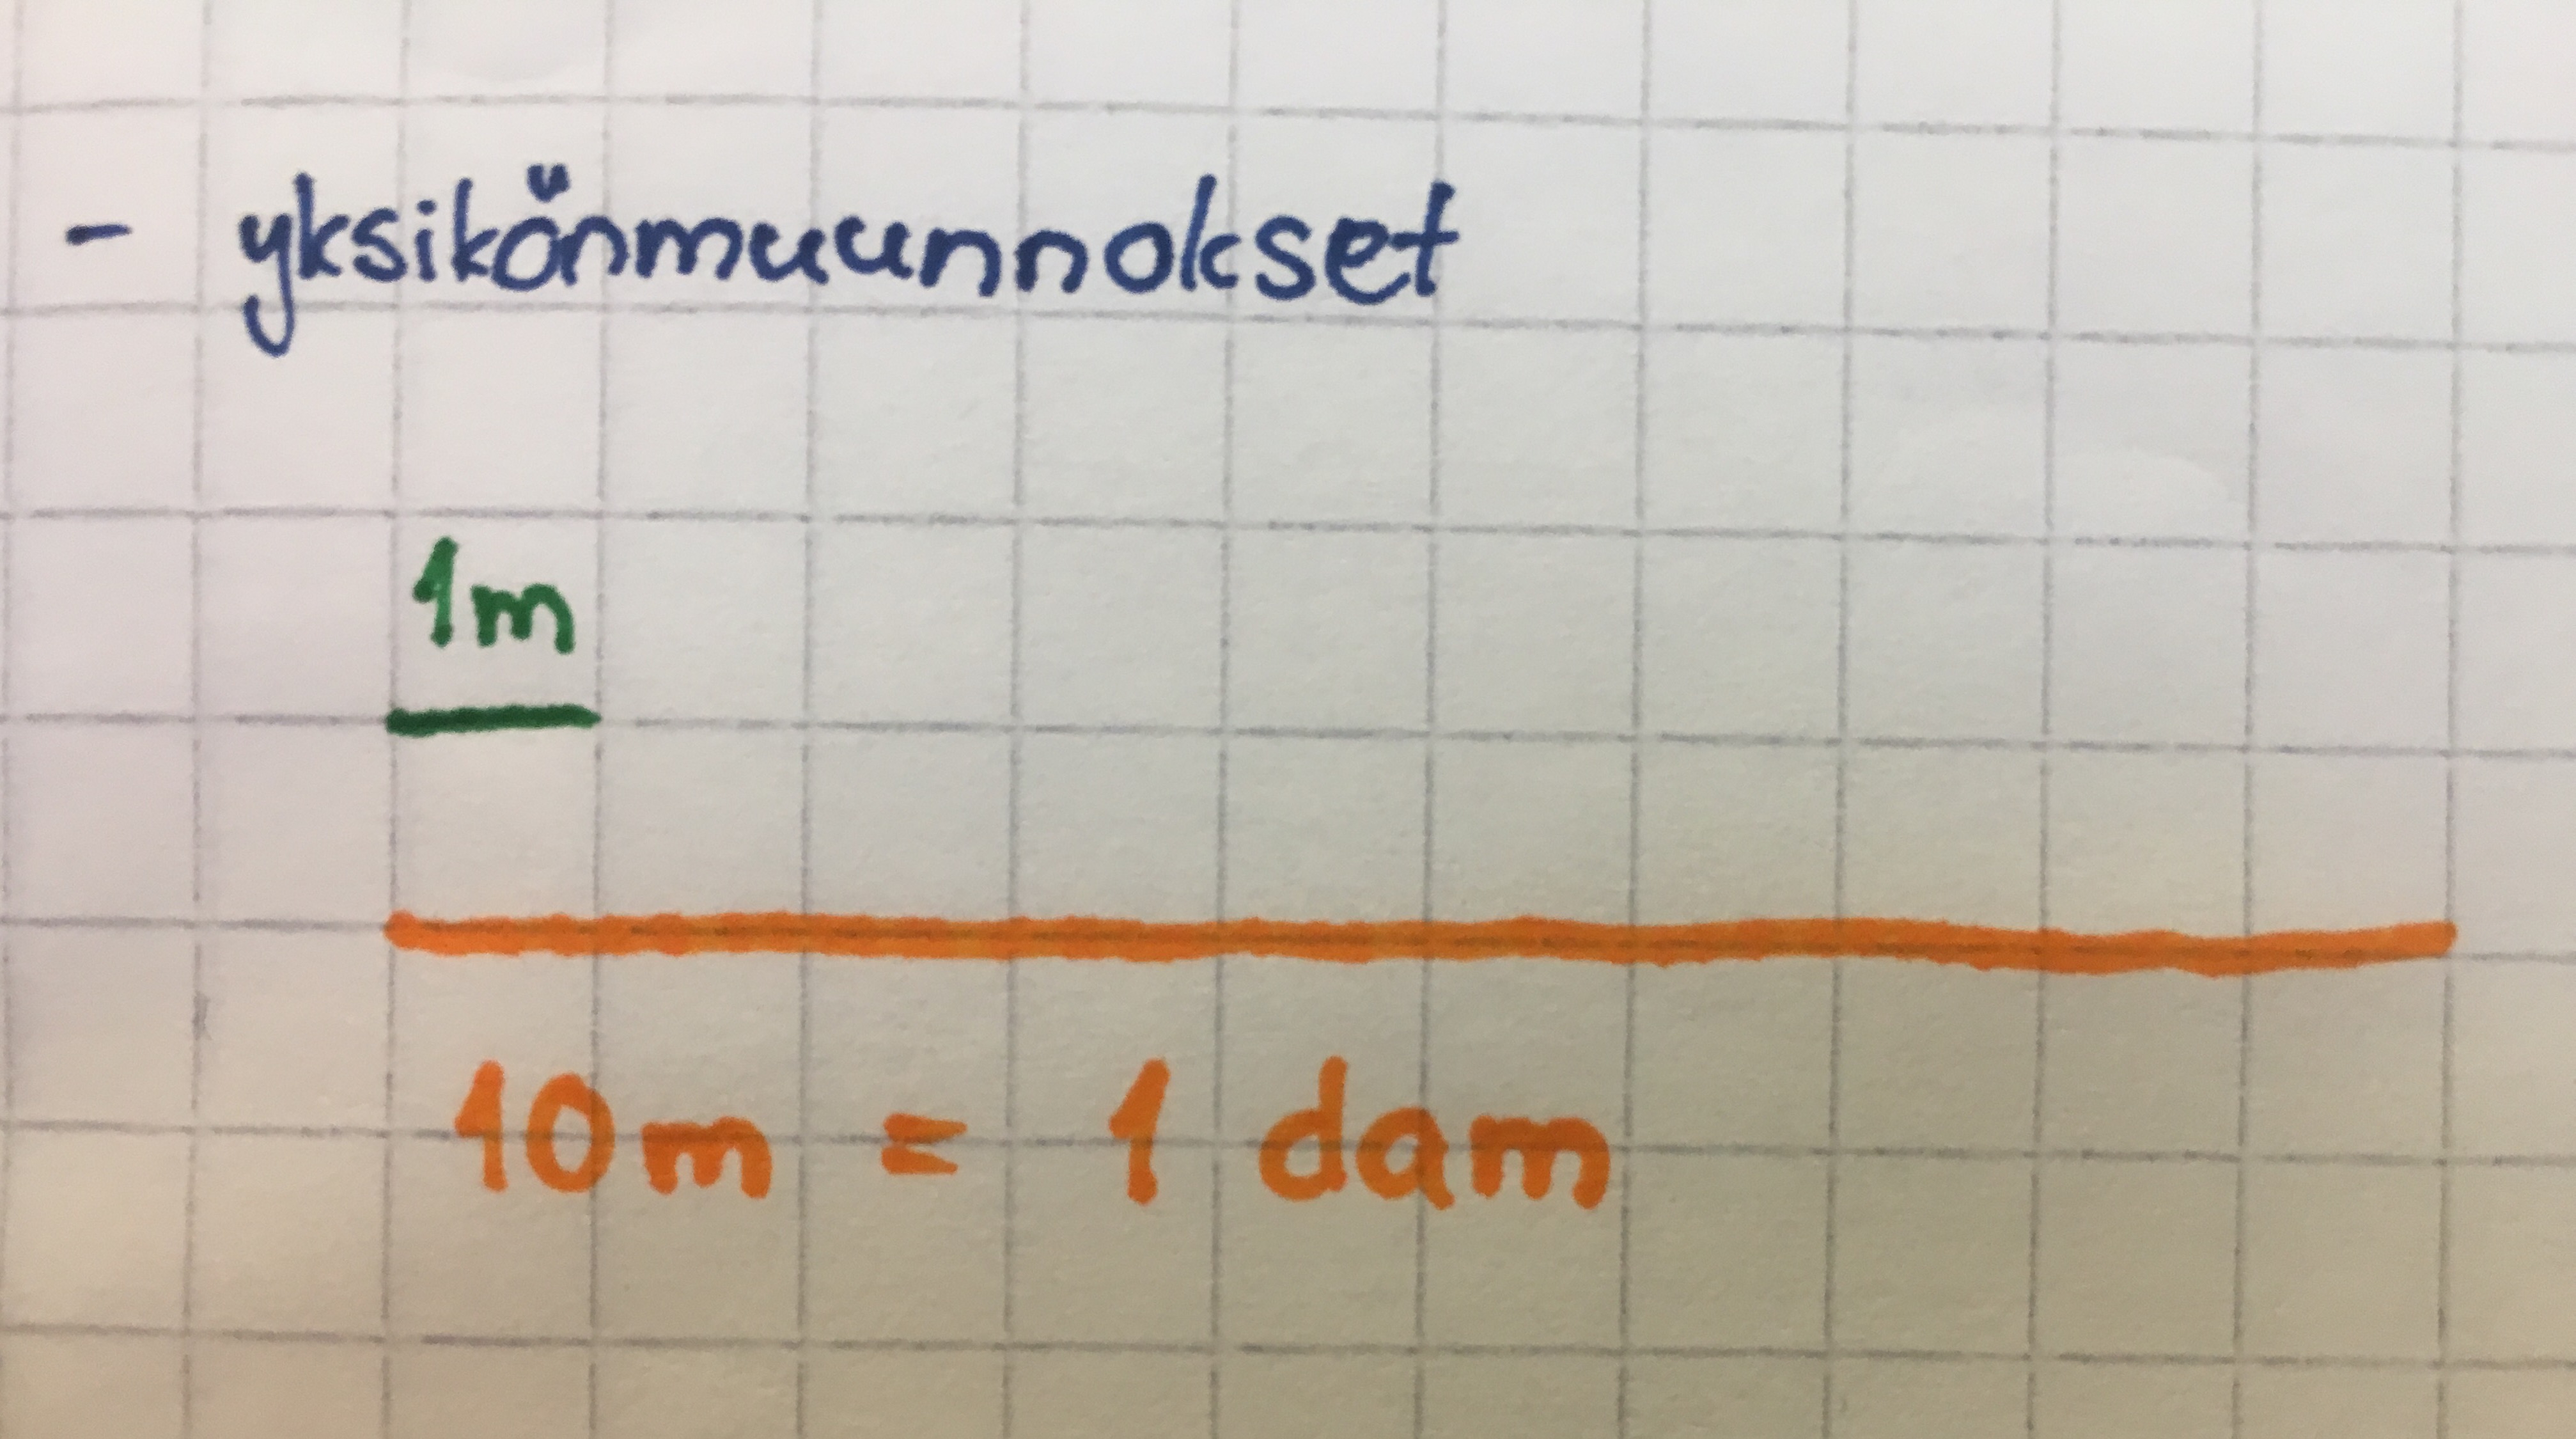 - yksikönmuunnokset
1m
10m = 1 dam